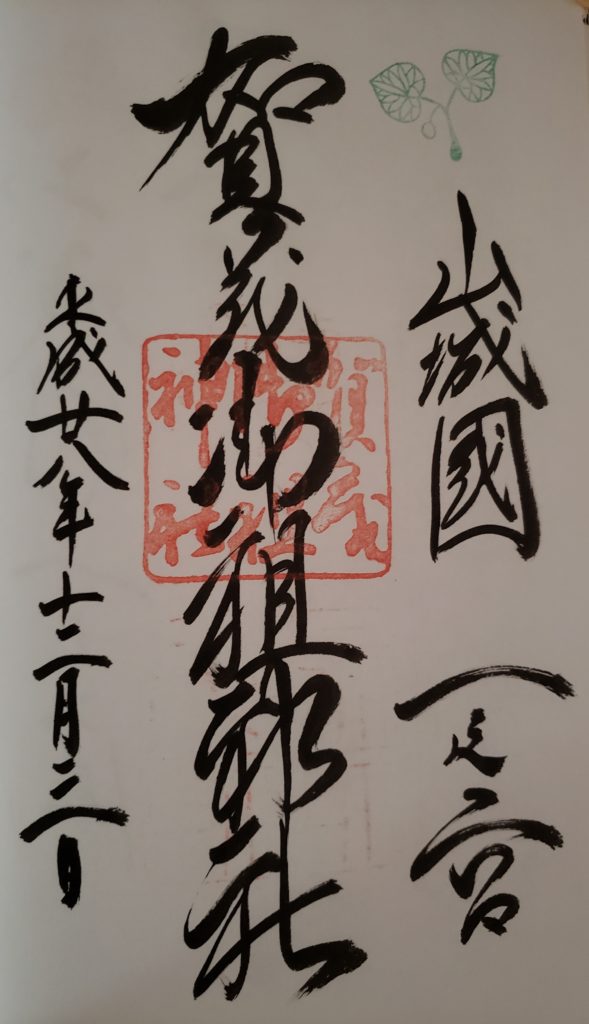 山城國 一之宮
賀茂御祖神社
平成廿八年十二月三日
賀茂
御祖
神社